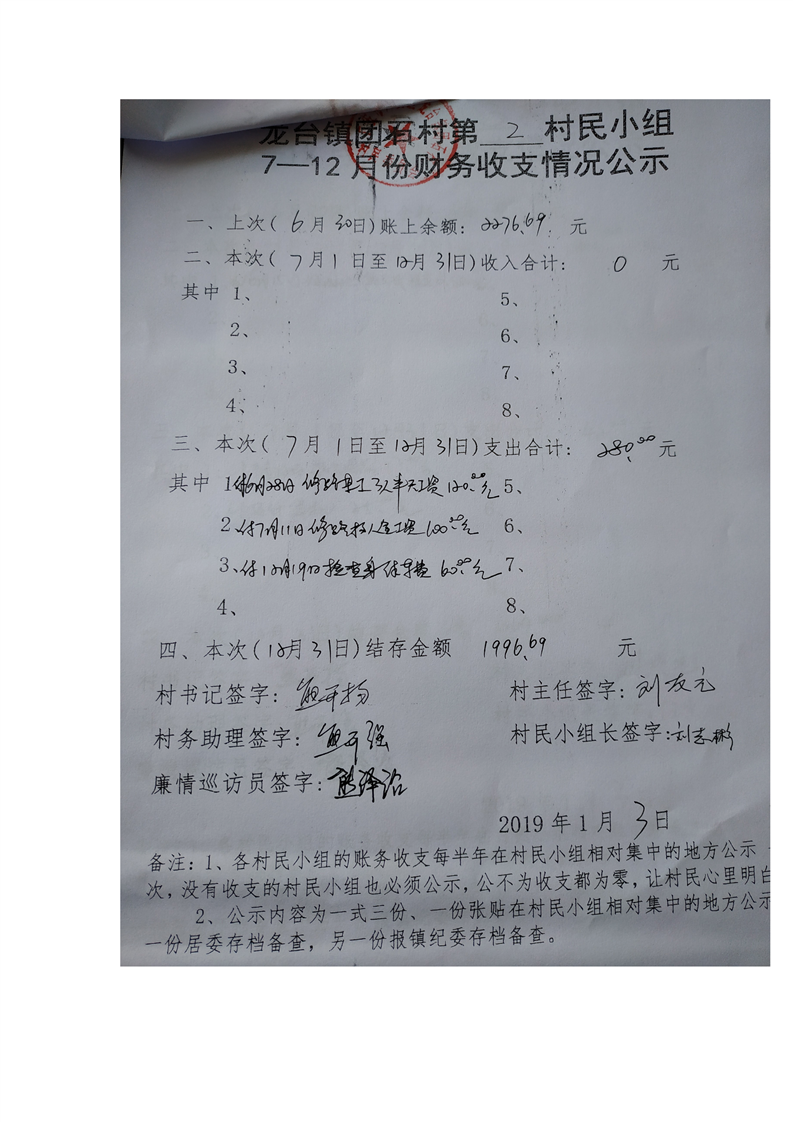 龙台镇团石村第 2 村民小组
7—12月份财务收支情况公示
一、上次(6月30日)账上余额: 2276.69 元
二、本次(7月1日至12月31日)收入合计: 0 元
其中 1、 5、
2、 6、
3、 7、
4、 8、
三、本次(7月1日至12月31日)支出合计: 280.00元
其中 1、付6月28日修路 工资120.00元 5、
2、付7月11日修路 工资100.00元 6、
3、付12月19日检查 60.00元 7、
4、 8、
四、本次(12月31日)结存金额 1996.69 元
村书记签字: 村主任签字:刘友元
村务助理签字: 村民小组长签字:刘志彬
廉情巡访员签字:熊泽治
2019年1月3日
备注:1、各村民小组的账务收支每半年在村民小组相对集中的地方公示
次,没有收支的村民小组也必须公示,公不为收支都为零,让村民心里明白
2、公示内容为一式三份、一份张贴在村民小组相对集中的地方公示
一份居委存档备查,另一份报镇纪委存档备查。